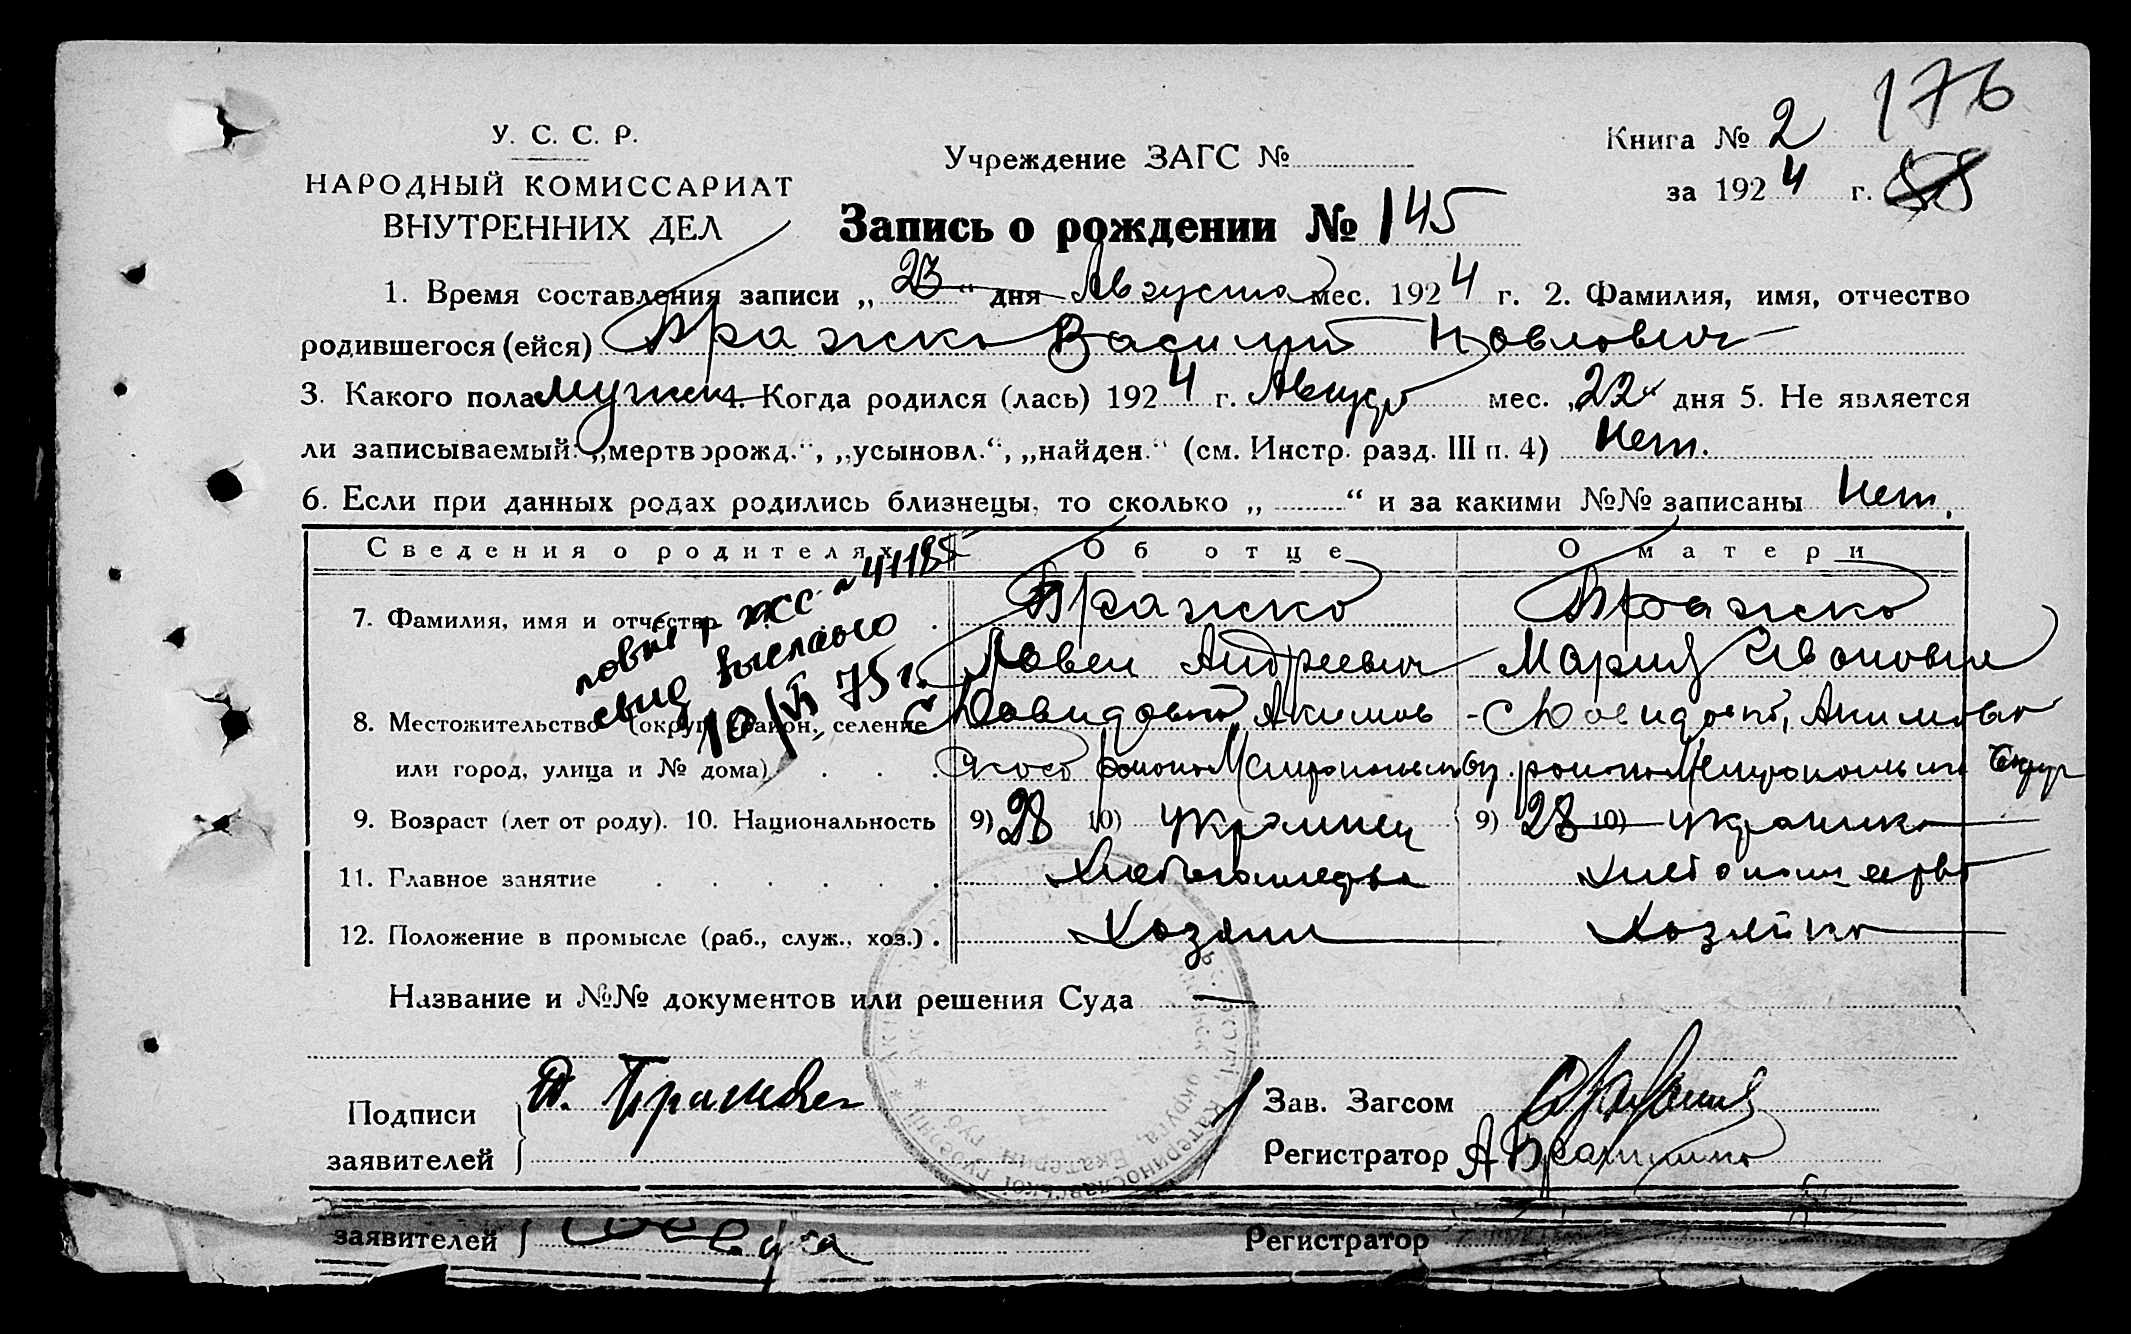 176
У. С. С. Р.
НАРОДНЫЙ КОМИССАРИАТ
ВНУТРЕННИХ ДЕЛ
Учреждение ЗАГС №
Книга № 2
за 1924 г. 58
Запись о рождении № 145
1. Время составления записи „ 23 “ дня Августа мес. 1924 г. 2. Фамилия, имя, отчество
родившегося (ейся) Бражко Василий Павлович
3. Какого пола мужск 4. Когда родился (лась) 1924 г. Август мес. „22“ дня 5. Не является
ли записываемый: „мертворожд.“, „усыновл.“, „найден.“ (см. Инстр. разд. III п. 4) Нет.
6. Если при данных родах родились близнецы, то сколько „ “ и за какими №№ записаны Нет.
Сведения о родителях Об отце О матери
7. Фамилия, имя и отчество Бражко Бражко
Павел Андреевич Мария Ивановна
повт р ЖС № 41185
свид выслано
10/VI 75 г.
8. Местожительство (округ, район, селение С Давидовка, Акимов - С Давидовка, Акимовского
или город, улица и № дома) ского района Мелитопольск района Мелитопольского округ
9. Возраст (лет от роду). 10. Национальность 9) 28 10) украинец 9) 28 10) украинка
11. Главное занятие Хлебопашество Хлебопашество
12. Положение в промысле (раб., служ., хоз.) Хозяин Хозяйка
Название и №№ документов или решения Суда —
Подписи
заявителей
П. Бражко
Зав. Загсом
Регистратор А
заявителей
Регистратор